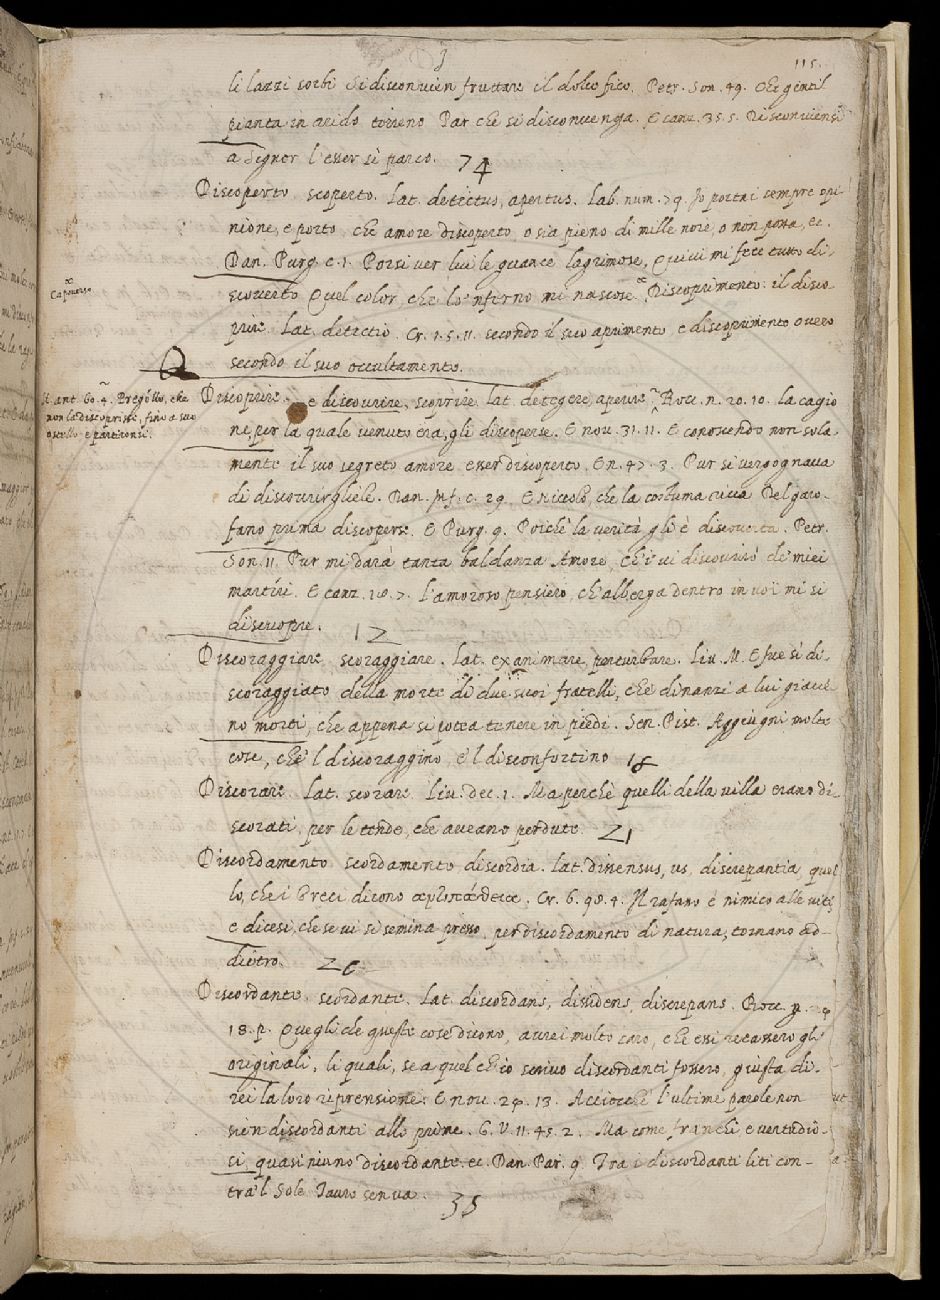 115.
li lazzi sorbi si disconvien fruttare il dolce fico. Petr. Son. 49. Che gentil
pianta in arido terreno Par che si disconvenga. E canz. 35. 5. Disconviensi
a Signor l'esser sì parco. 74
Discoperto. scoperto. Lat. detectus, apertus. Lab. num. 79. Io portai sempre opi-
nione, e porto, che amore discoperto, o sia pieno di mille noie, o non possa, ec.
Dan. Purg. c. 1. Porsi ver lui le guance lagrimose, Quivi mi fece tutto di-
scoverto Quel color, che lo'nferno mi nascose. Discoprimento. il disco-
Capoverso
prire. Lat. detectio. Cr. 1. 5. 11. secondo il suo aprimento, e discoprimento overo
secondo il suo occultamento.
Discoprire. e discovrire, scovrire. lat. detegere, aperire. Bocc. n. 20. 10. la cagio
N. ant. 60. 4. Pregollo, che
non la discoprisse, fino a suo
ostello: e partironsi.
ne, per la quale venuto era, gli discoperse. E nov. 31. 11. E conoscendo non sola
mente il suo segreto amore esser discoperto. E n. 47. 3. Pur si vergognava
di discovrirgliele. Dan. Inf. c. 29. E Niccolò, che la costuma ricca Del garo-
fano prima discoperse. E Purg. 9. Poichè la verità gli è discoverta. Petr.
Son. 11. Pur mi darà tanta baldanza Amore, Ch'i' vi discovrirò de' miei
martiri. E canz. 20. 7. l'amoroso pensiero, ch'alberga dentro in voi mi si
discuopre. 12
Discoraggiare. scoraggiare. Lat. exanimare, perturbare. Liv. M. E fue sì di-
scoraggiato della morte di due suoi fratelli, che dinanzi a lui giacie
no morti, che appena si potea tenere in piedi. Sen. Pist. Aggiugni molte
cose, che'l discoraggino, e'l disconfortino 18
Discorare. Lat. scorare. Liv. dec. 1. Ma perchè quelli della villa erano di-
scorati, per le tende, che aveano perdute. 21
Discordamento. scordamento, discordia. Lat. dissensus, us, discrepantia, quel
lo, che i Greci dicono Cr. 6. 98. 4. Il rafano è nimico alle viti,
e dicesi, che se vi si semina presso, per discordamento di natura, tornano ad-
dietro. 26
Discordante. scordante. Lat. discordans, dissidens, discrepans. Bocc. p.
18. p. Quegli che queste cose dicono, avrei molto caro, che essi recassero gli
originali, li quali, se a quel ch'io scrivo discordanti fossero, giusta di-
rei la loro riprensione. E nov. 24. 13. Acciocchè l'ultime parole non
sien discordanti alle prime. G. V. 11. 45. 2. Ma come franchi e vertudio-
si, quasi niuno discordante, ec. Dan. Par. 9. Tra i discordanti liti con-
tra'l Sole Tanto sen va. 35